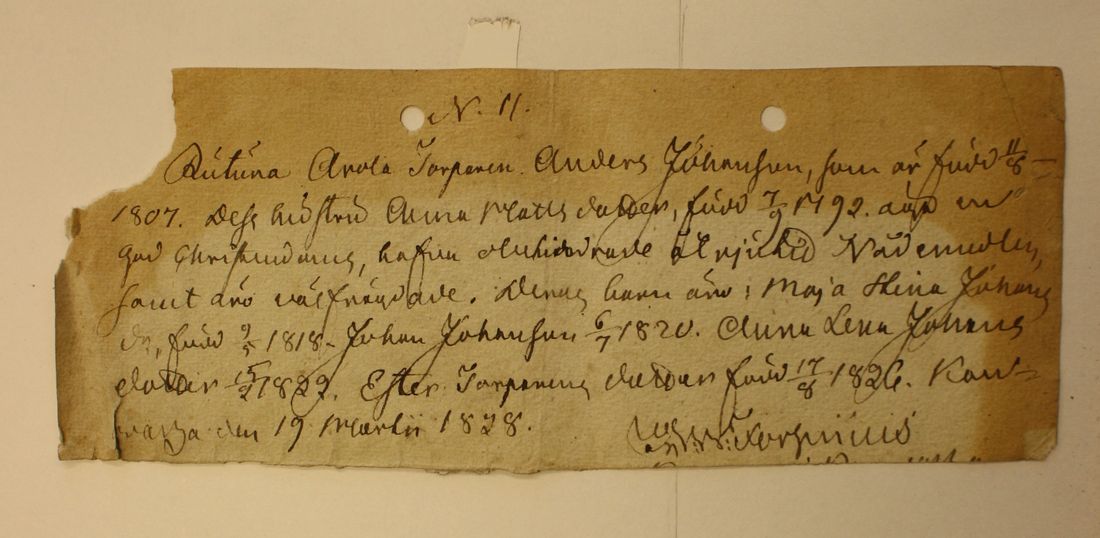 N. 11.
Rutuna Arola Torparen Anders Johansson, som är född 11/8
1807. Dess hustru Anna Matts dotter, född 7/9 1792. äga en
god Christendoms, hafva obehindrade åtnjutit Nådemedlen,
samt äro välfrägdade. Deras barn äro: Maja Stina Johans
dr, född 9/5 1818. Johan Johansson 6/7 1820. Anna Lena Johans
dotter 15/2 1822. Ester Torparens dotter född 17/8 1826. Kou-
den 19 Martii 1828.